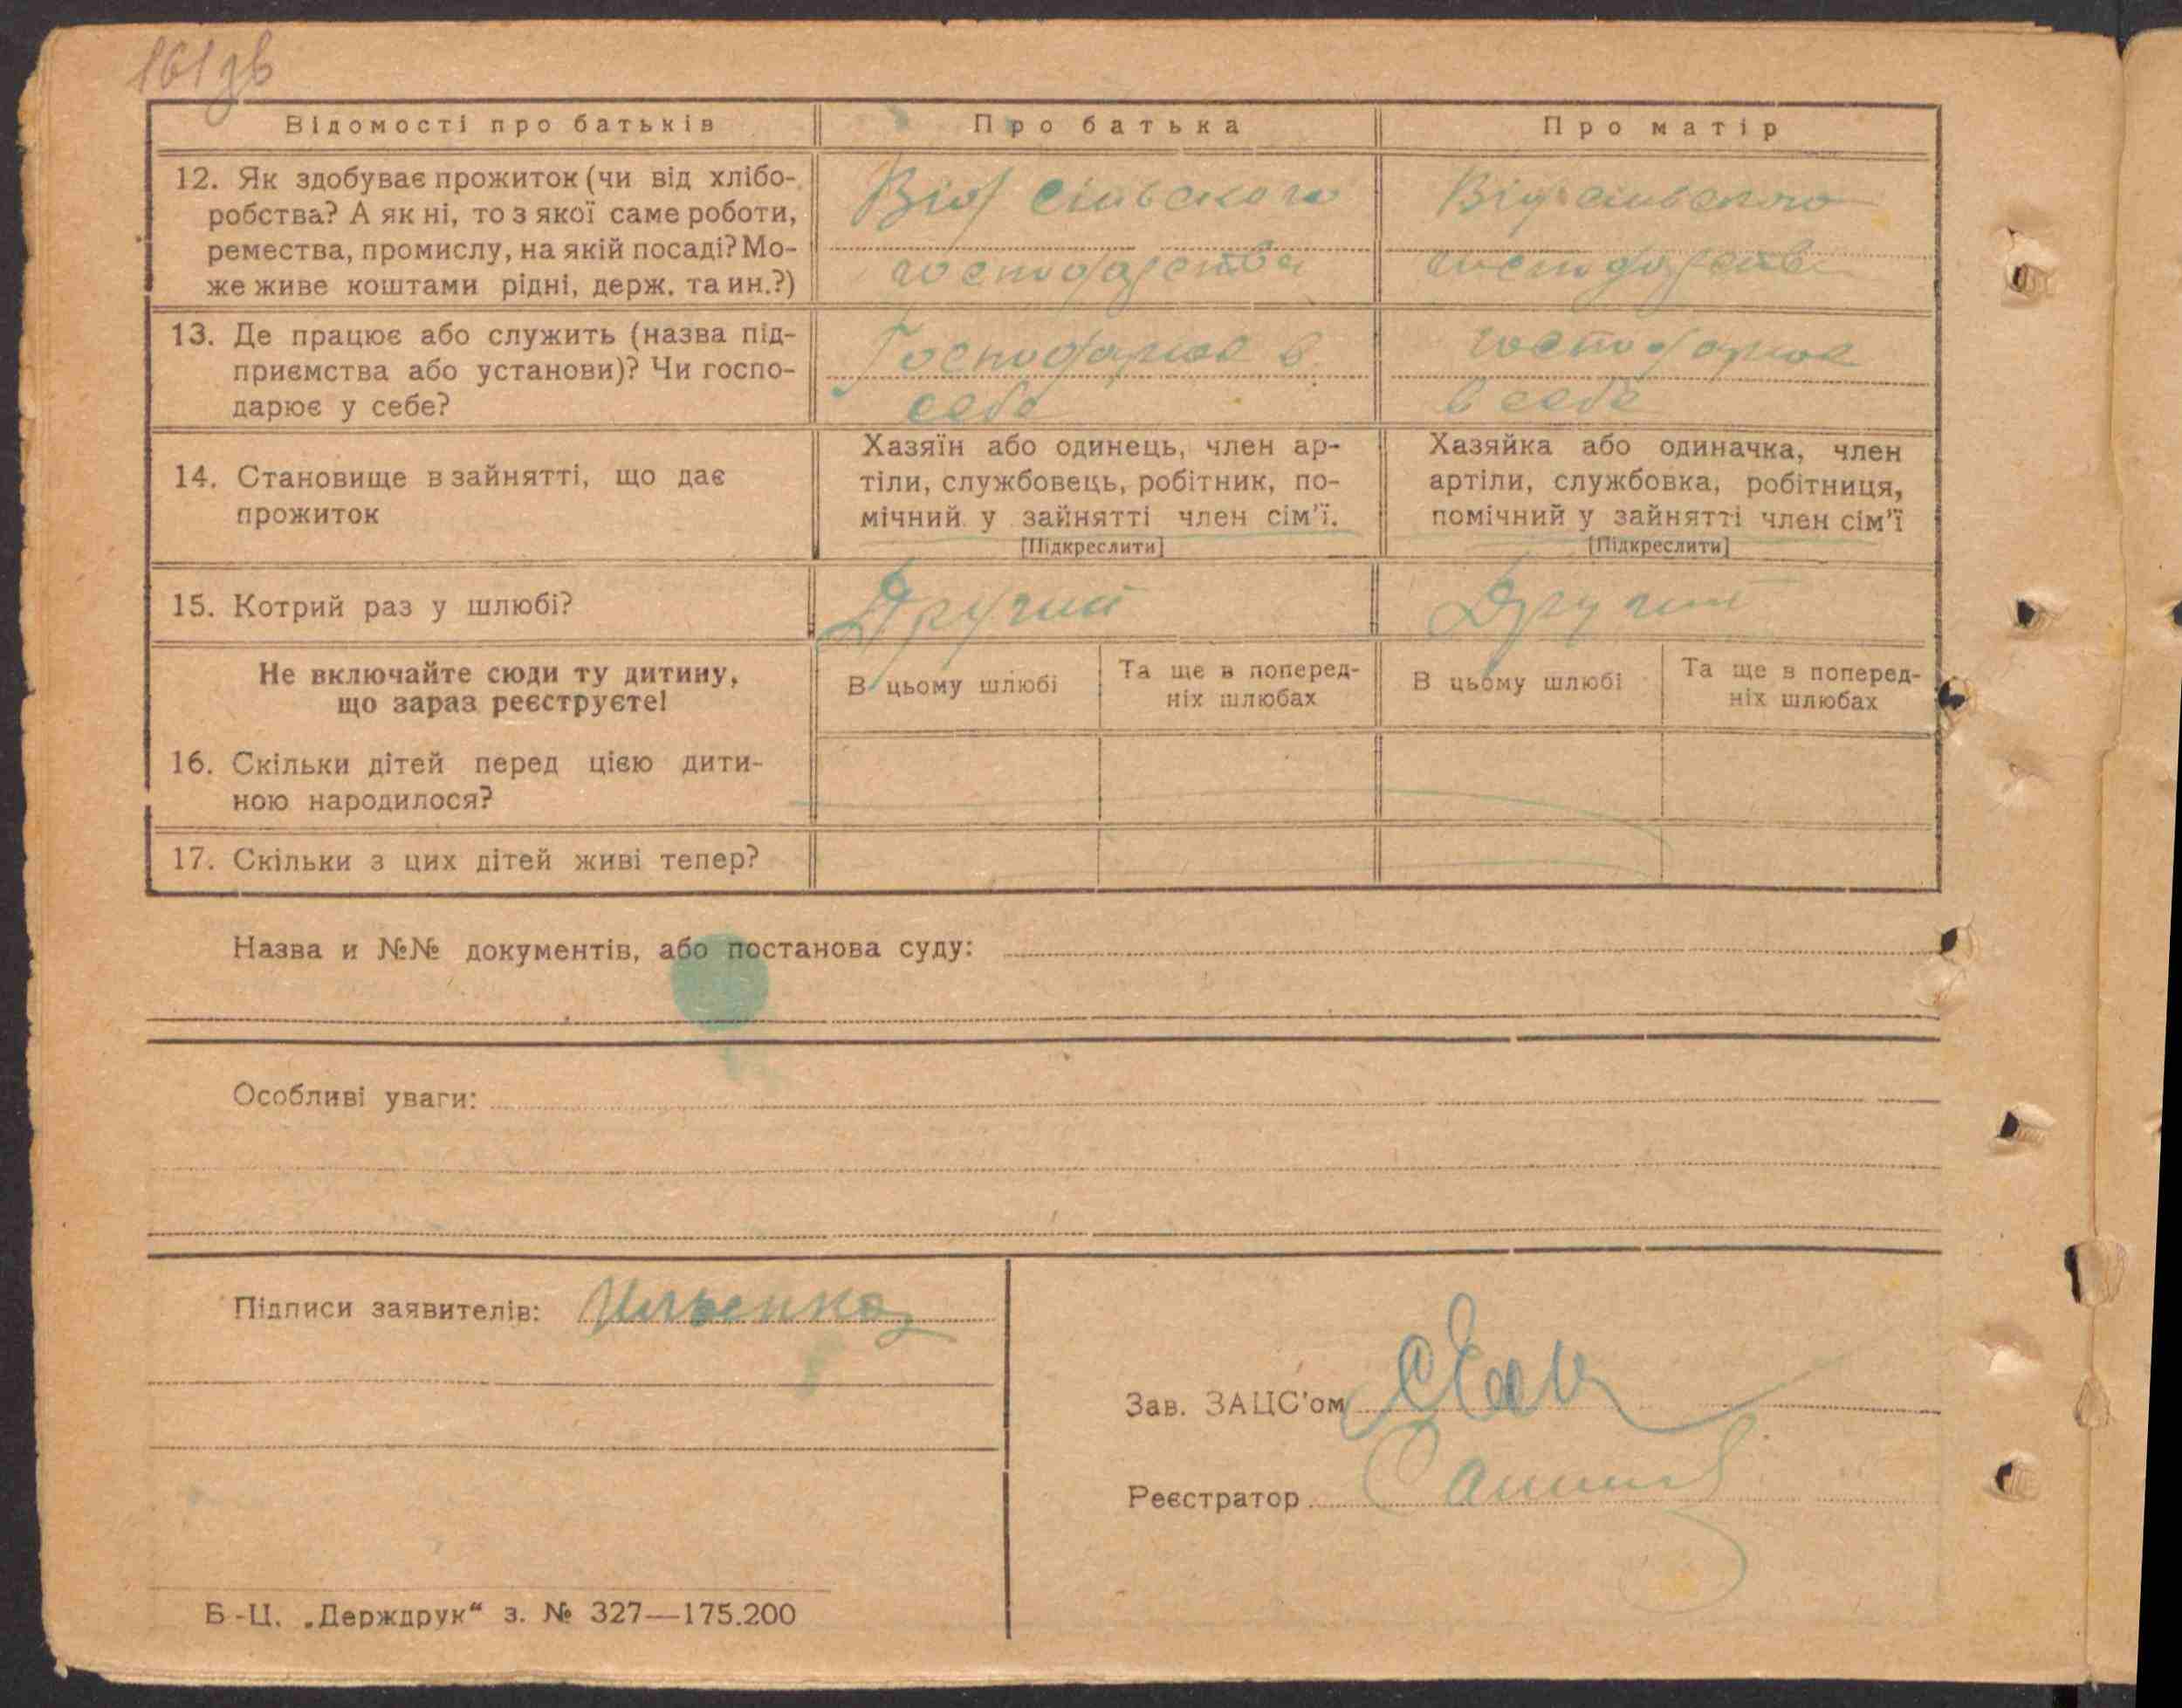 161 зв
Відомості про батьків
Про батька
Про матір
12. Як здобуває прожиток (чи від хлібо-
робства? А як ні, то з якої саме роботи,
ремества, промислу, на якій посаді? Мо-
же живе коштами рідні, держ. та ин.?)
Від сільского
господарства
Від сільского
господарства
13. Де працює або служить (назва під-
приємства або установи)? Чи госпо-
дарює у себе?
Господарює в
себе
господарює
в себе
14. Становище в зайнятті, що дає
прожиток
Хазяїн або одинець, член ар-
тіли, службовець, робітник, по-
мічний у зайнятті член сім'ї.
[Підкреслити]
Хазяйка або одиначка, член
артіли, службовка, робітниця,
помічний у зайнятті член сім'ї
[Підкреслити]
15. Котрий раз у шлюбі?
Другий
Другий
Не включайте сюди ту дитину,
що зараз реєструєте!
В цьому шлюбі
Та ще в поперед-
ніх шлюбах
В цьому шлюбі
Та ще в поперед-
ніх шлюбах
16. Скільки дітей перед цією дити-
ною народилося?
17. Скільки з цих дітей живі тепер?
Назва и №№ документів, або постанова суду:
Особливі уваги:
Підписи заявителів: Ильенко
Зав. ЗАЦС'ом
Реєстратор
Б-Ц. „Держдрук“ з. № 327—175.200